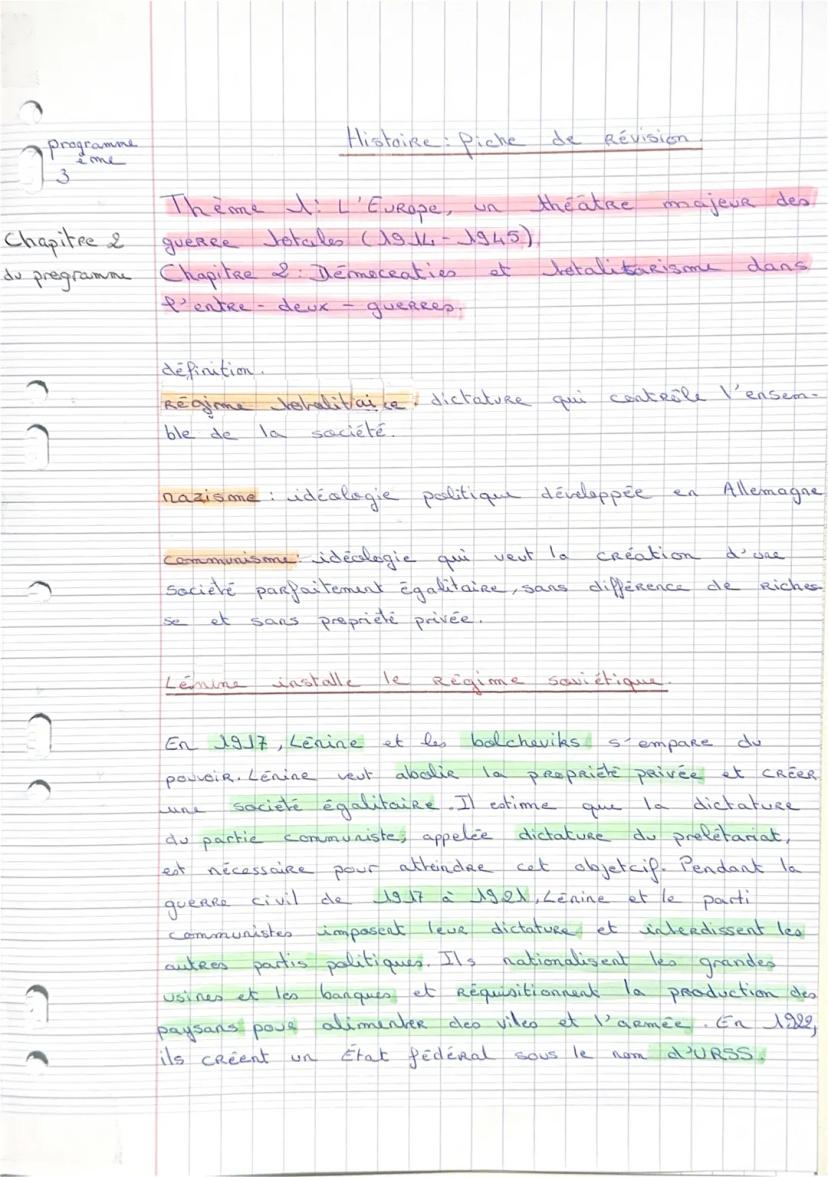 Histoire : fiche de Révision.
programme
ème
3
Thème 1 : L'Europe, un théâtre majeur des
Chapitre 2
guerre totales (1914 - 1945)
du programme
Chapitre 2 : Démocraties et totalitarisme dans
l'entre - deux - guerres.
définition.
Régime totalitaire : dictature qui contrôle l'ensem-
ble de la société.
nazisme : idéologie politique développée en Allemagne
communisme : idéologie qui veut la création d'une
société parfaitement égalitaire, sans différence de Riches-
se et sans propriété privée.
Lénine installe le Régime soviétique.
En 1917, Lénine et les bolcheviks s'empare du
pouvoir. Lénine veut abolir la propriété privée et CRÉER
une société égalitaire. Il estime que la dictature
du partie communiste, appelée dictature du prolétariat,
est nécessaire pour atteindre cet objetcif. Pendant la
guerre civil de 1917 à 1921, Lénine et le parti
communistes imposent leur dictature et interdissent les
autres partis politiques. Ils nationalisent les grandes
usines et les banques et Réquisitionnent la production des
paysans pour alimenter des viles et l'armée. En 1922,
ils créent un État fédéral sous le nom d'URSS.